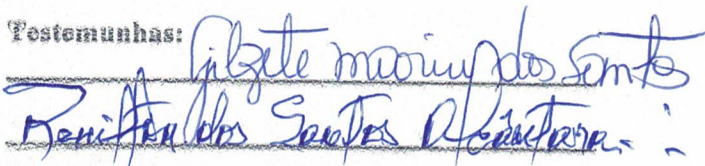 Testemunhas: Gilzete marinho dos Santos
Renilton dos Santos Alcântara